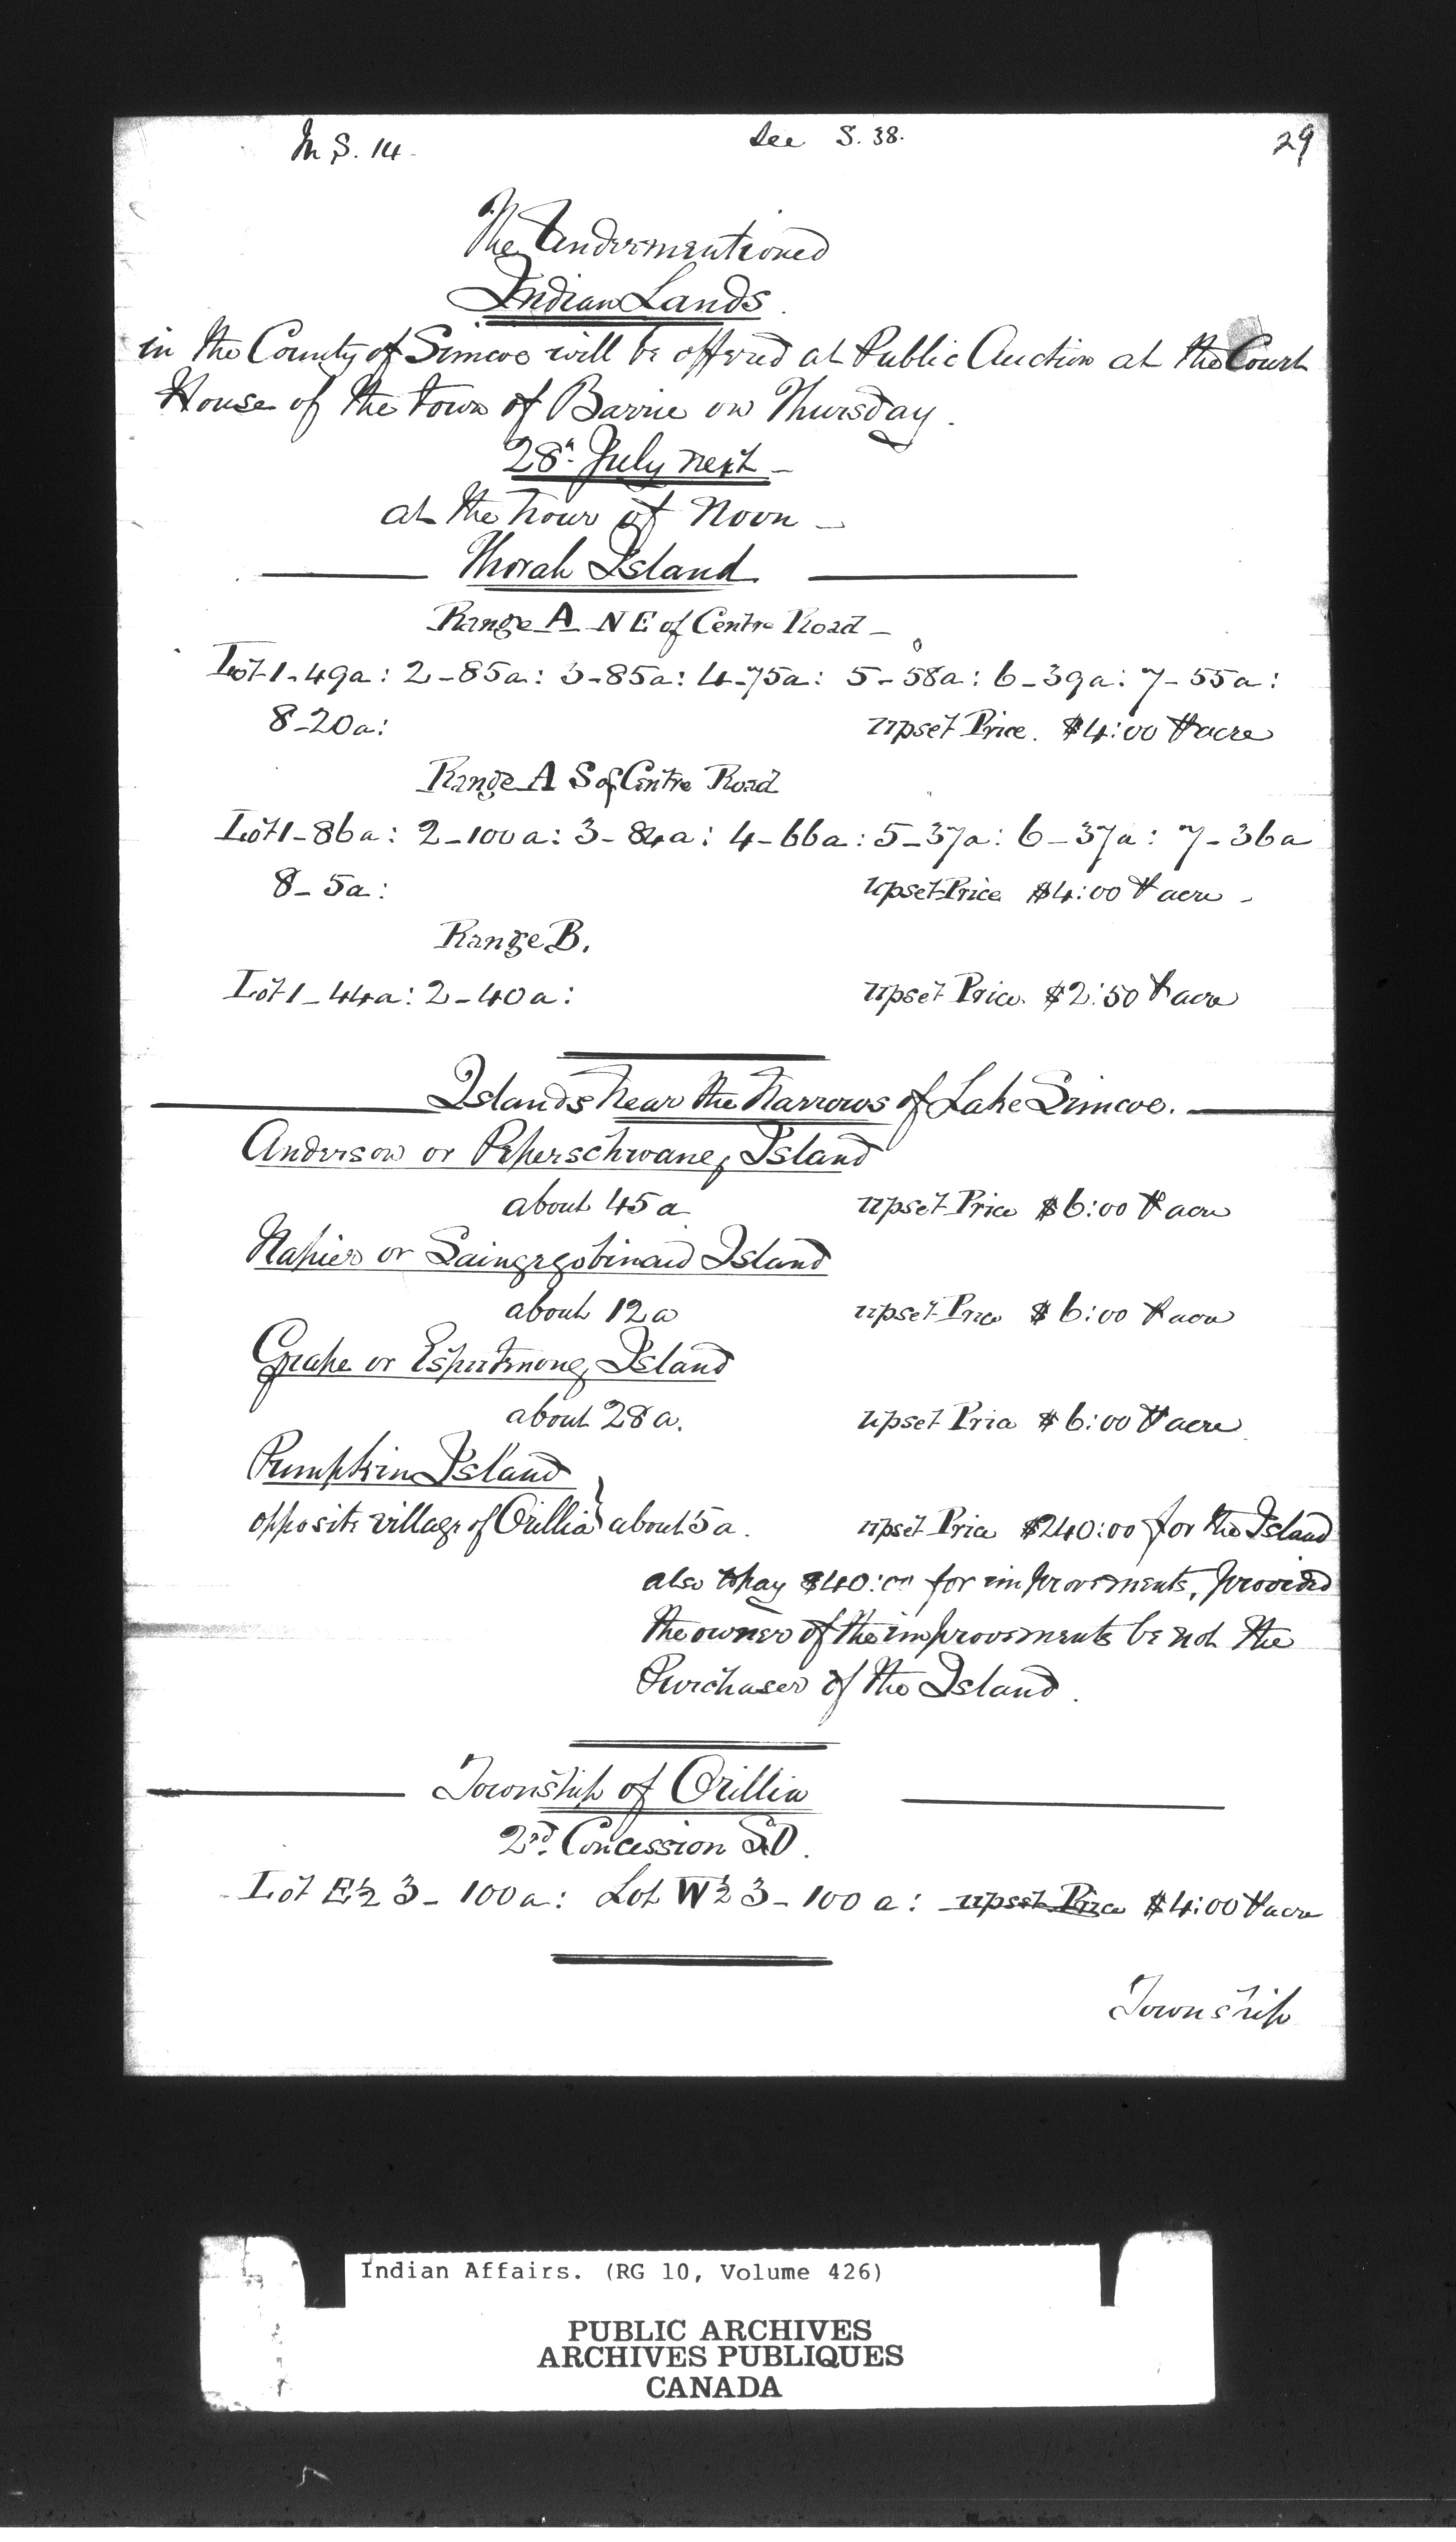 M S. 14. See S. 38. 29
The Undermentioned
Indian Lands.
in the County of Simcoe will be offered at Public Auction at the Court
House of the town of Barrie on Thursday.
28th July next -
at the hour of Noon -
Thorah Island
Range A N E of Centre Road -
Lot 1 - 49a: 2 - 85a: 3 - 85a: 4 - 75a: 5 - 58a: 6 - 39a: 7 - 55a:
8 - 20a: upset Price. $4:00 ⅌ acre
Range A S of Centre Road
Lot 1 - 86a: 2 - 100a: 3 - 84a: 4 - 66a: 5 - 37a: 6 - 37a: 7 - 36a
8 - 5a: upset Price $4:00 ⅌ acre -
Range B.
Lot 1 - 44a: 2 - 40a: upset Price. $2:50 ⅌ acre
Islands near the Narrows of Lake Simcoe.
Anderson or Island
about 45a upset Price $6:00 ⅌ acre
Napier or Island
about 12a upset Price $6:00 ⅌ acre
Grape or Island
about 28a. upset Price $6:00 ⅌ acre
Pumpkin Island
opposite village of Orillia} about 5a. upset Price $240:00 for the Island
also to pay $40:00 for improvements, provided
the owner of the improvements be not the
Purchaser of the Island.
Township of Orillia
2nd. Concession S.D.
Lot E½ 3 - 100a: Lot W½ 3 - 100a: upset Price $4:00 ⅌ acre
Township
Indian Affairs. (RG 10, Volume 426)
PUBLIC ARCHIVES
ARCHIVES PUBLIQUES
CANADA